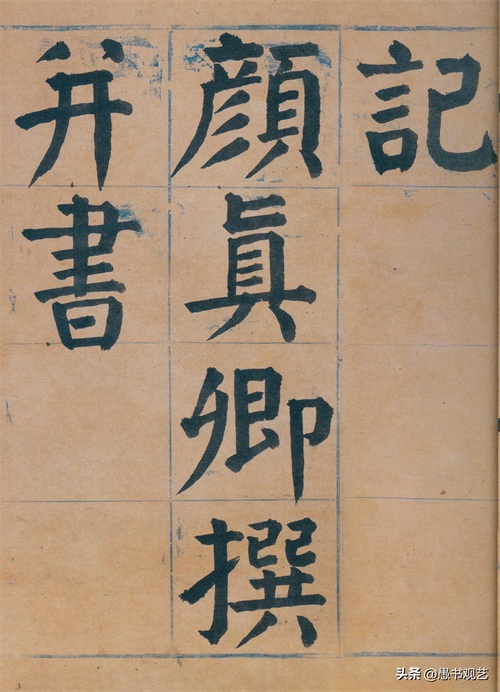 記
顔真卿撰
并書
3
头条 @愚书观艺